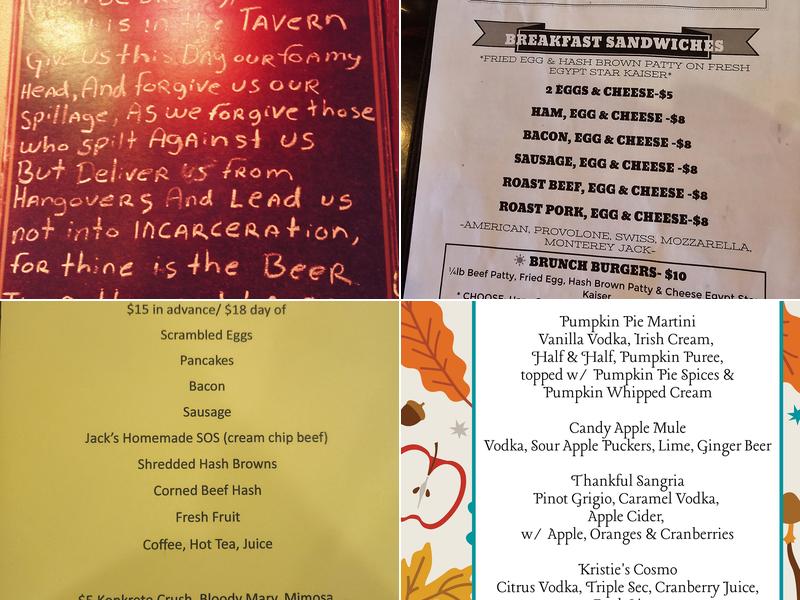 is in the TAVERN
Give us this Day our foamy
Head, And forgive us our
Spillage, As we forgive those
who spilt AgAinst us
But Deliver us from
HangoverS And Lead us
not into INCARCERATION,
for thine is the BeeR
BREAKFAST SANDWICHES
*FRIED EGG & HASH BROWN PATTY ON FRESH
EGYPT STAR KAISER*
2 EGGS & CHEESE-$5
HAM, EGG & CHEESE -$8
BACON, EGG & CHEESE -$8
SAUSAGE, EGG & CHEESE -$8
ROAST BEEF, EGG & CHEESE -$8
ROAST PORK, EGG & CHEESE-$8
-AMERICAN, PROVOLONE, SWISS, MOZZARELLA,
MONTEREY JACK-
BRUNCH BURGERS- $10
¼lb Beef Patty, Fried Egg, Hash Brown Patty & Cheese Egypt
Kaiser
* CHOOSE
$15 in advance/ $18 day of
Scrambled Eggs
Pancakes
Bacon
Sausage
Jack's Homemade SOS (cream chip beef)
Shredded Hash Browns
Corned Beef Hash
Fresh Fruit
Coffee, Hot Tea, Juice
$5 Konkrete Crush, Bloody Mary, Mimosa
Pumpkin Pie Martini
Vanilla Vodka, Irish Cream,
Half & Half, Pumpkin Puree,
topped w/ Pumpkin Pie Spices &
Pumpkin Whipped Cream
Candy Apple Mule
Vodka, Sour Apple Puckers, Lime, Ginger Beer
Thankful Sangria
Pinot Grigio, Caramel Vodka,
Apple Cider,
w/ Apple, Oranges & Cranberries
Kristie's Cosmo
Citrus Vodka, Triple Sec, Cranberry Juice,